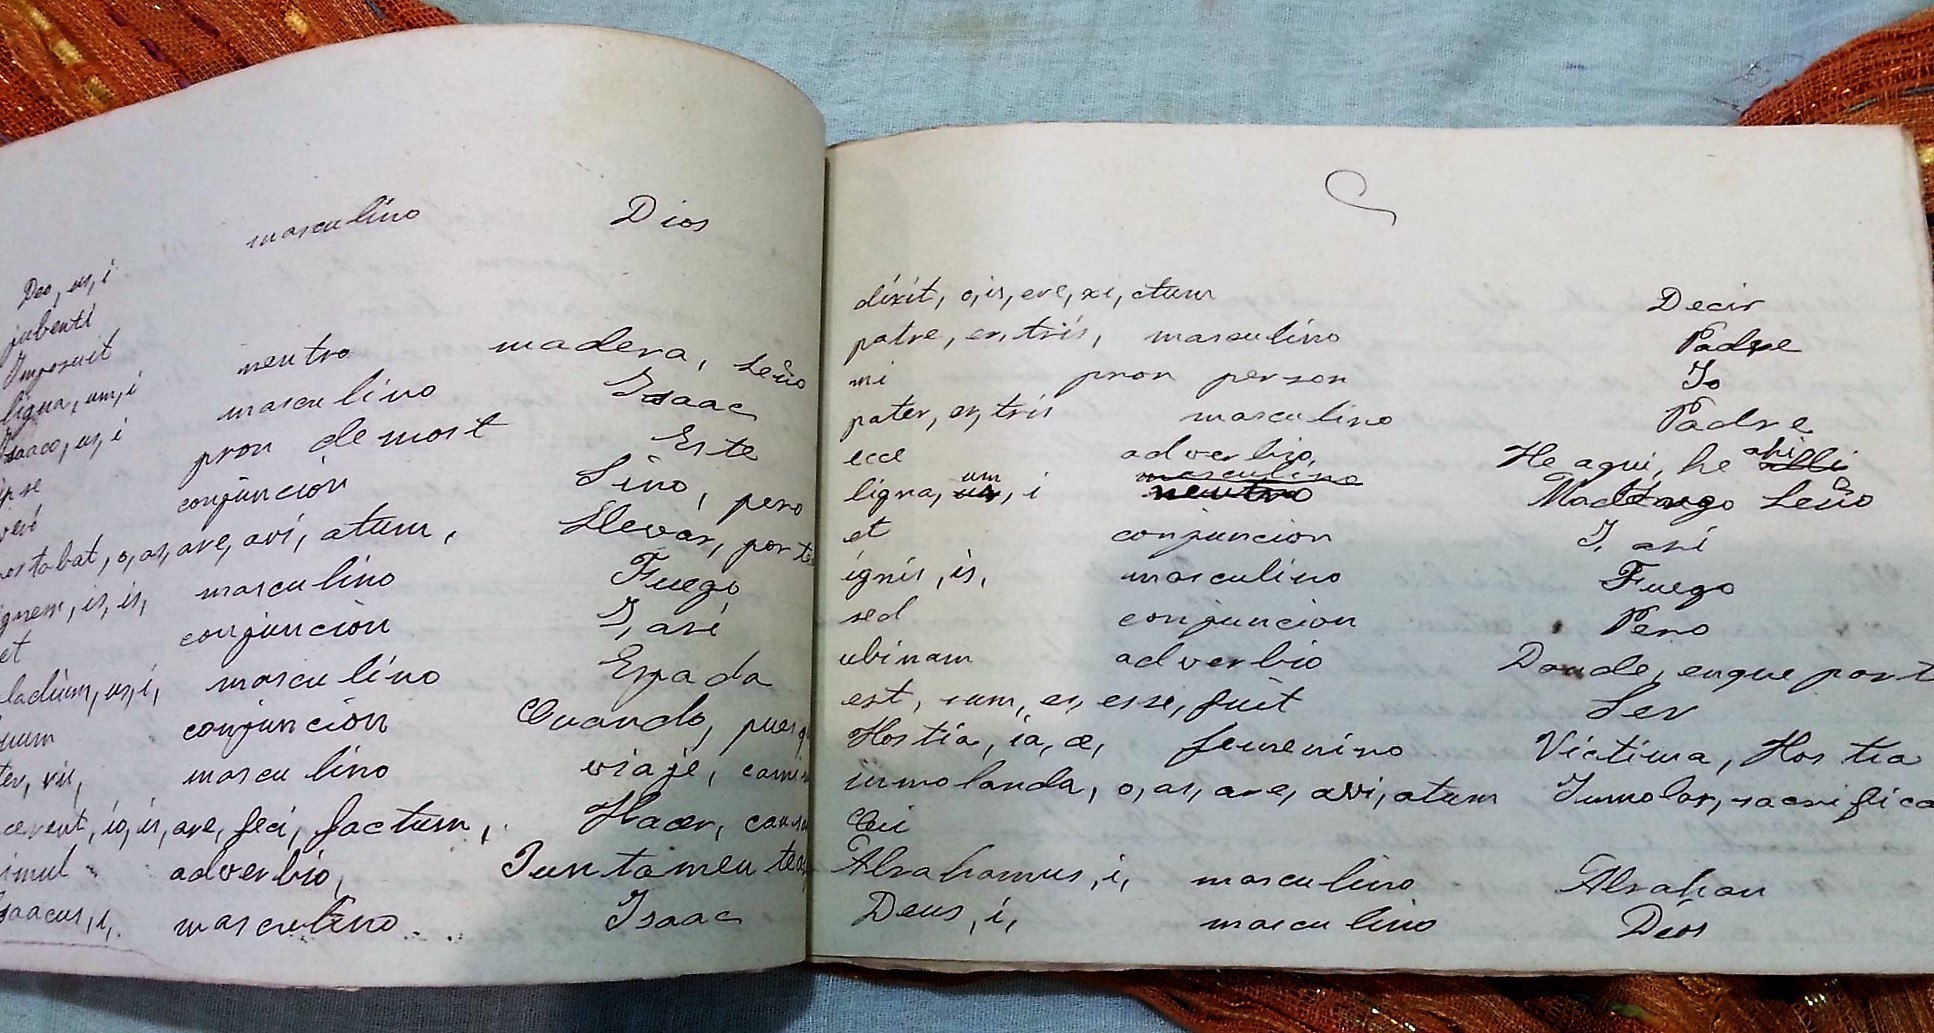 Deo, us, i masculino Dios
jubenti
Imposuit
ligna, um, i neutro madera, Leño
Isaaco, us, i masculino Isaac
ipse pron demost Este
veri conjuncion Sino, pero
ortabat, o, as, are, avi, atum, Llevar, port
gnem, is, is, masculino Fuego
et conjuncion I, asi
ladium, us, i, masculino Espada
uum conjuncion Cuando, pues q
ter, vis, masculino viaje, cami
cerent, io, is, are, feci, factum, Hacer, caus
imul adverbio, Juntamente
saacus, i, masculino Isaac
dixit, o, is, ere, xi, ctum Decir
patre, er, tris, masculino Padre
mi pron person Io
pater, er, tris masculino Padre
ecce adverbio He aqui, he ahi
ligna, um, i masculino neutro Leño
et conjuncion I, asi
ignis, is, masculino Fuego
sed conjuncion Pero
ubinam adverbio Donde, enque part
est, sum, es, esse, fuit Ser
Hostia, ia, æ, femenino Victima, Hostia
inmolanda, o, as, are, avi, atum Inmolar, sacrifica
Cui
Abrahamus, i, masculino Abrahan
Deus, i, masculino Dios